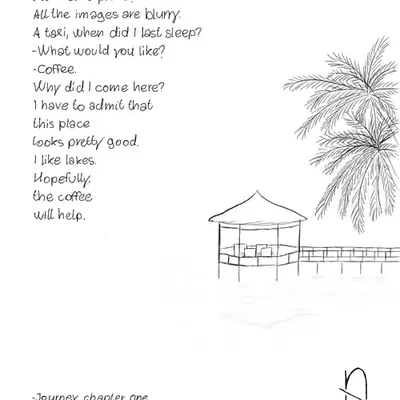 All the images are blurry.
A taxi, when did I last sleep?
-What would you like?
-Coffee.
Why did I come here?
I have to admit that
this place
looks pretty good.
I like lakes.
Hopefully,
the coffee
will help.
-Journey, chapter one